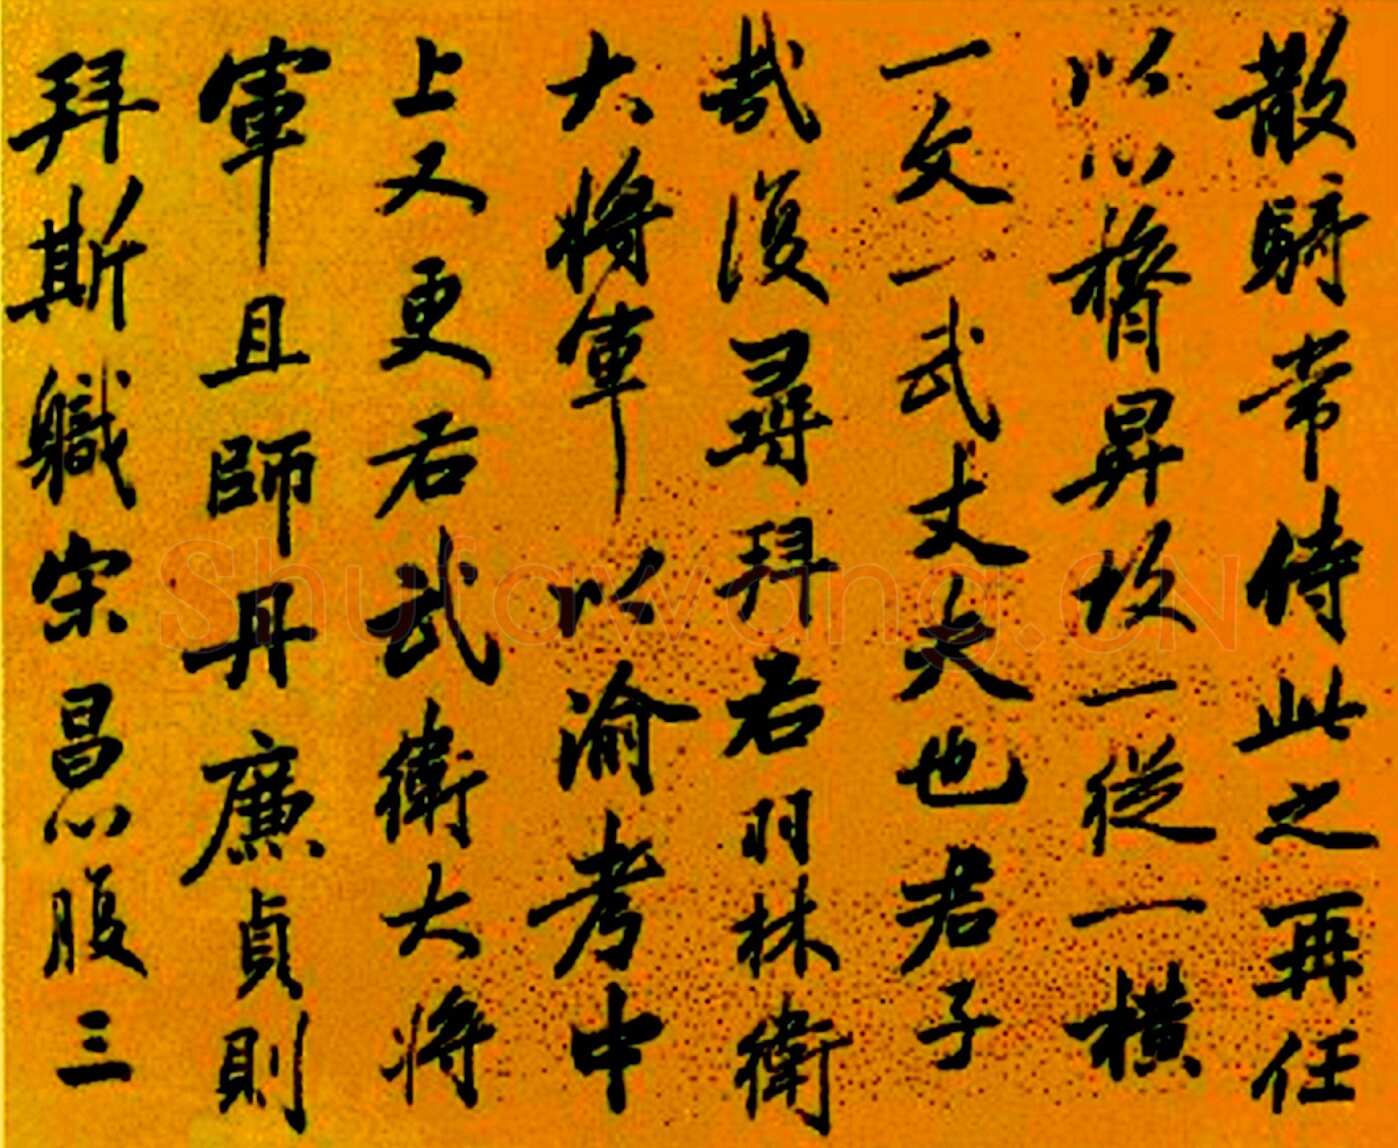 散騎常侍此之再任
以心膂昇坎一從一橫
一文一武丈夫也君子
哉復尋拜右羽林衛
大將軍以渝考中
上又更右武衛大將
軍且師丹廉貞則
拜斯職宋昌心腹三
Shufawang.CN